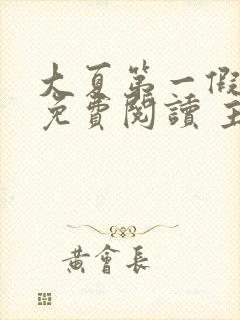 大夏第一假
免費閱讀 主
黃會長